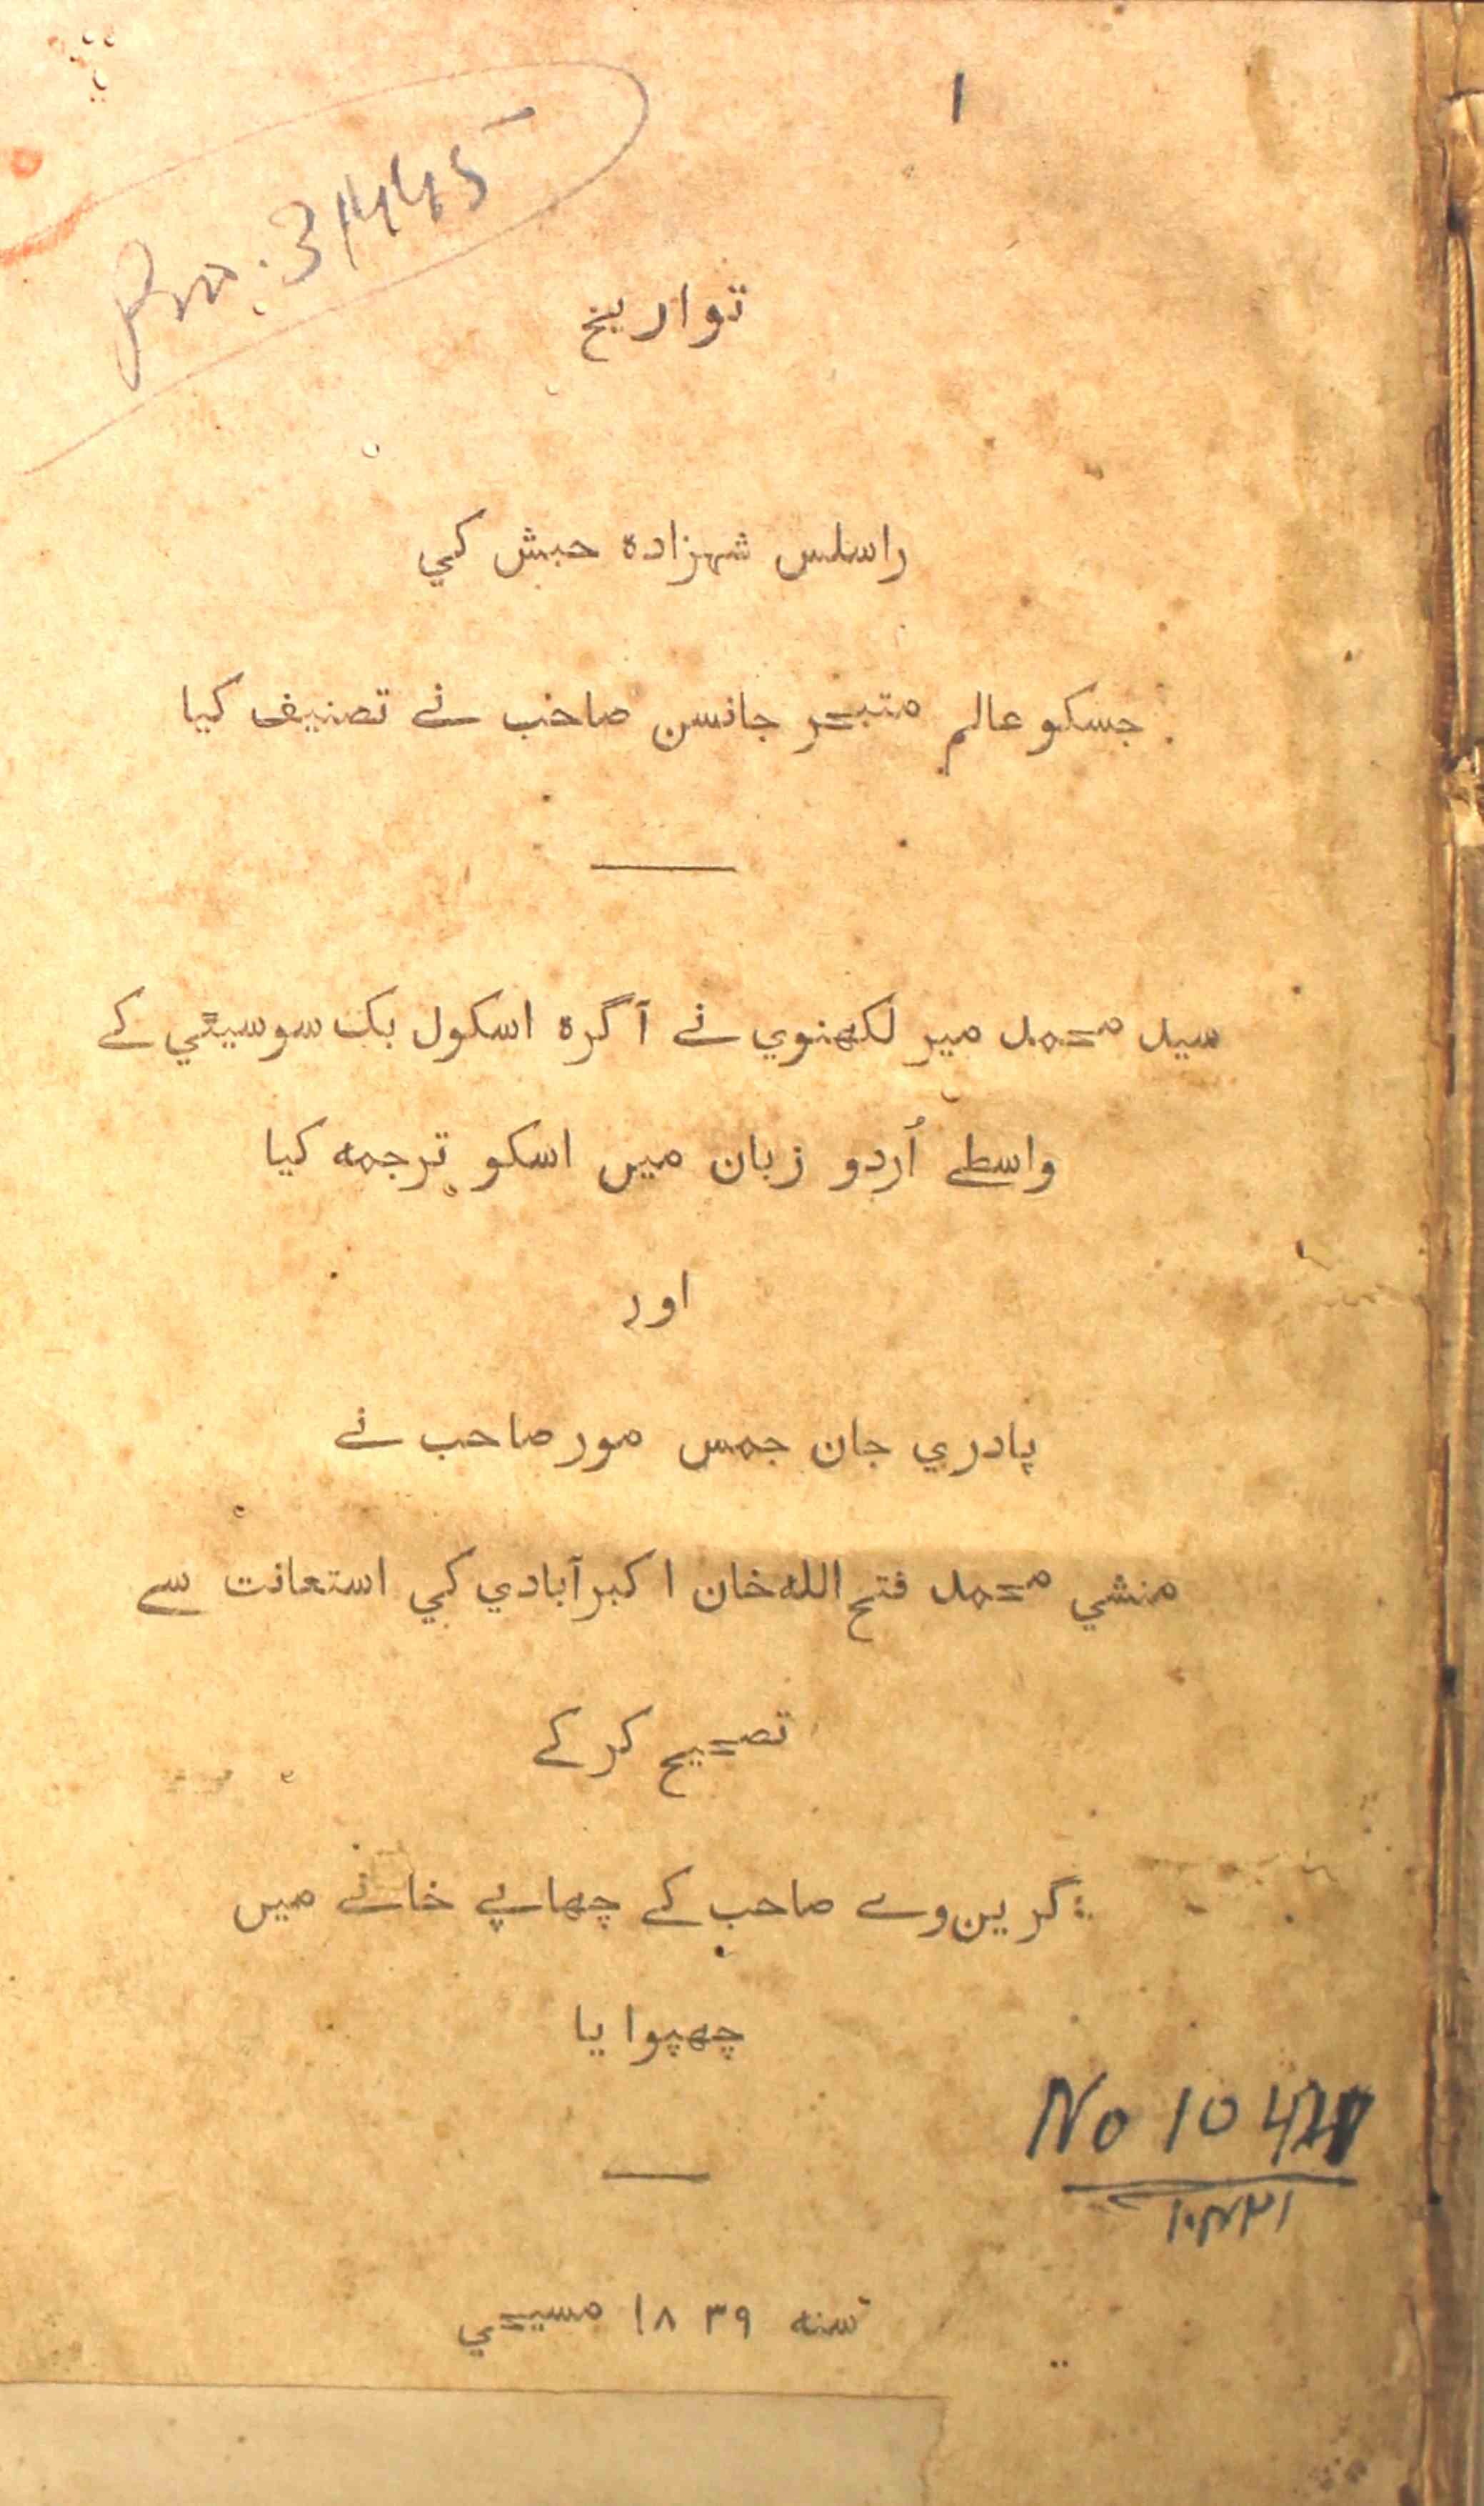 ۱
Pro. 31445
تواریخ
راسلس شہزادہ حبش کي
جسکو عالم متبحر جانسن صاحب نے تصنیف کیا
سید محمد میر لکھنوي نے آگرہ اسکول بک سوسیٹي کے
واسطے اُردو زبان میں اسکو ترجمہ کیا
اور
پادري جان جمس مور صاحب نے
منشي محمد فتح اللہ خان اکبرآبادي کي استعانت سے
تصحیح کرکے
گرین وے صاحب کے چھاپے خانے میں
چھپوایا
No 10421
۱۰۴۲۱
سنہ ۱۸۳۹ مسیحي